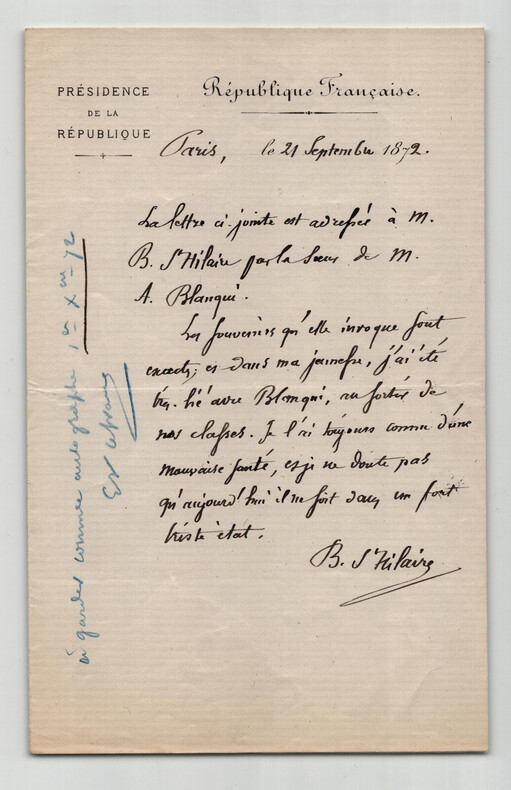 PRÉSIDENCE
DE LA
RÉPUBLIQUE
République Française.
Paris, le 21 Septembre 1872.
La lettre ci-jointe est adressée à M.
B. St Hilaire par la Sœur de M.
A. Blanqui.
Les souvenirs qu'elle invoque sont
exacts; et dans ma jeunesse, j'ai été
très lié avec Blanqui, au sortir de
nos classes. Je l'ai toujours connu d'une
mauvaise santé, et je ne doute pas
qu'aujourd'hui il ne soit dans un fort
triste état.
B. St Hilaire
à garder comme autographe 1er Xbre 72